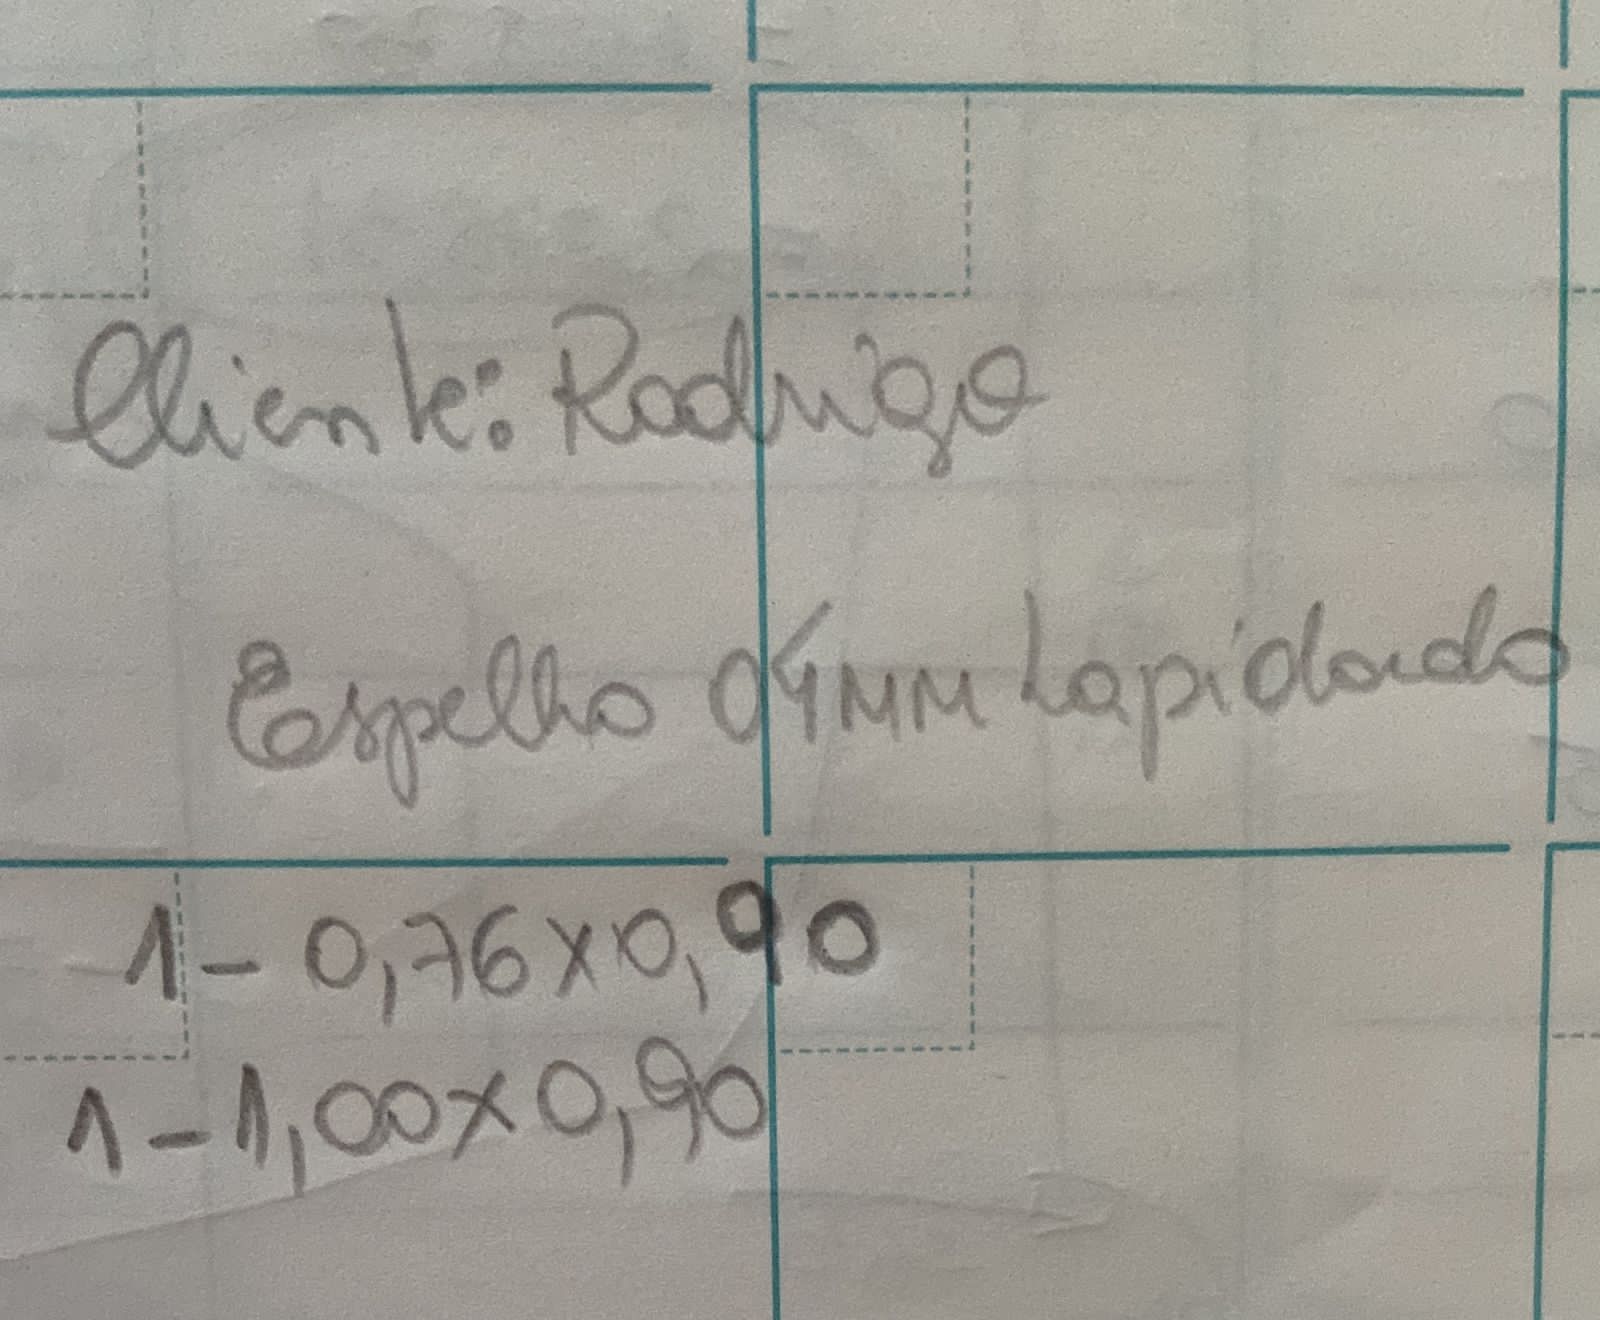 Cliente: Rodrigo
Espelho 04MM Lapidado
1 - 0,76x0,90
1 - 1,00x0,90